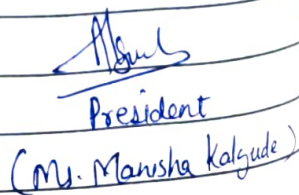 President
(Ms. Manisha Kalgude)